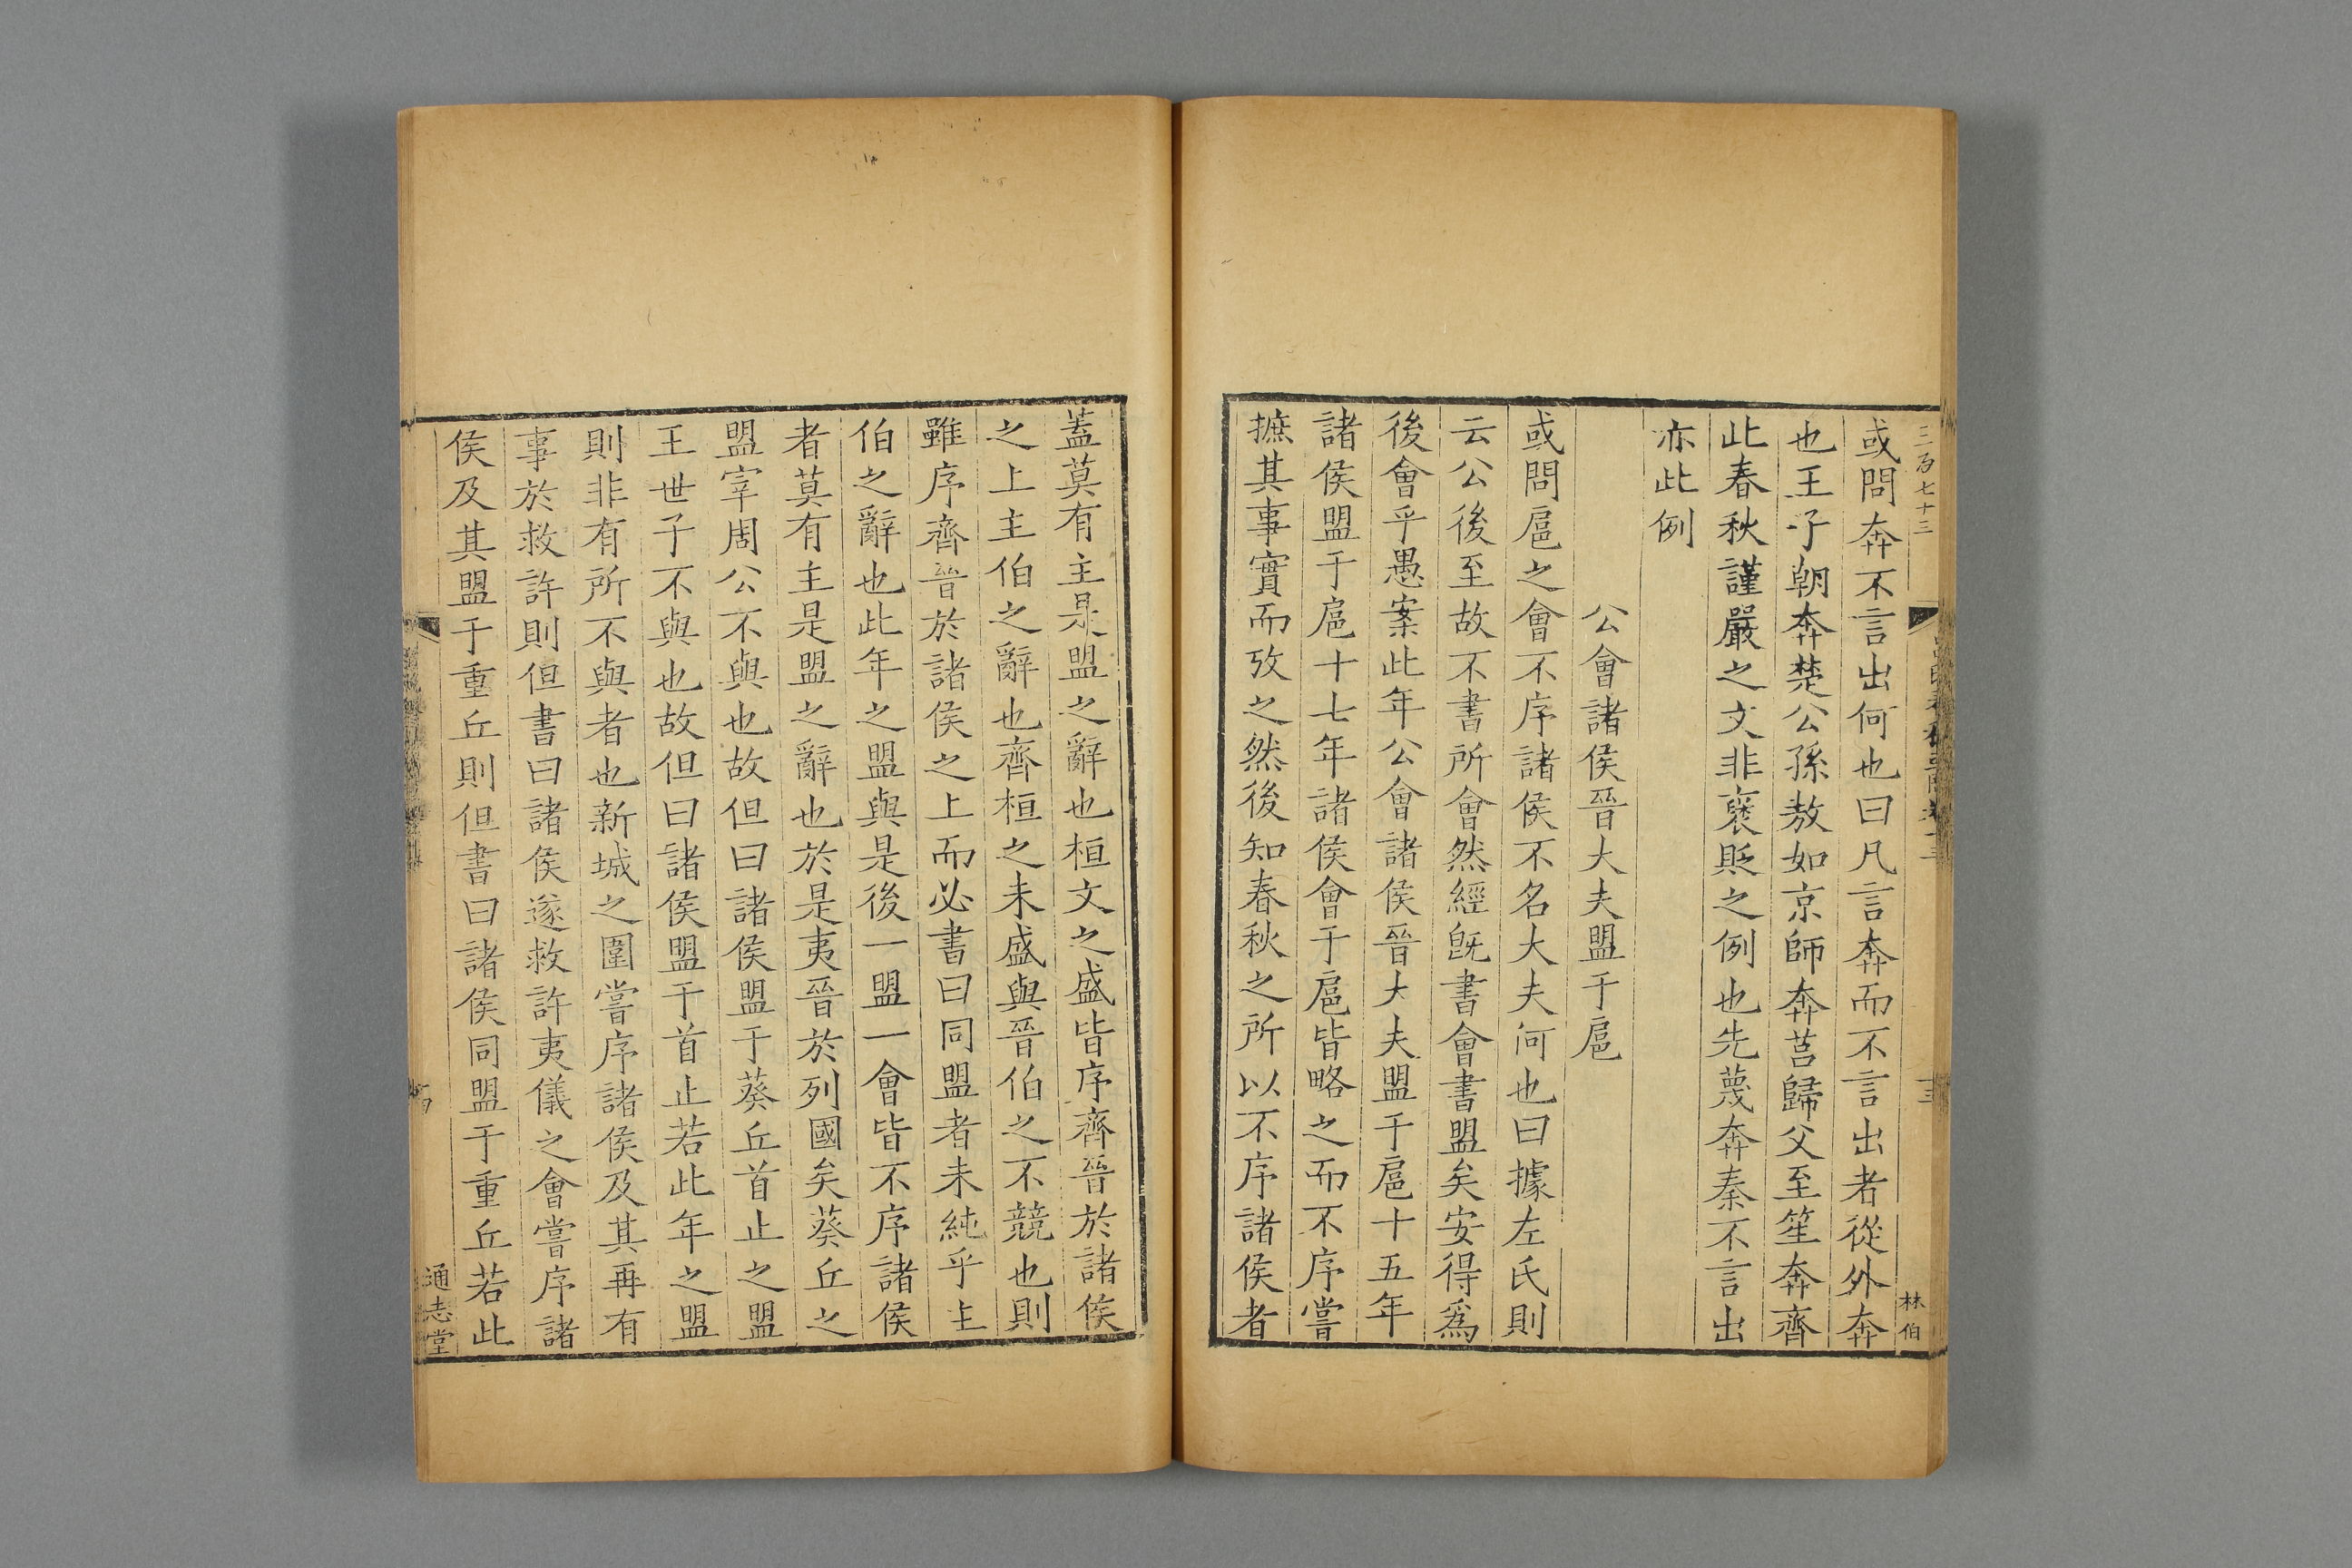 三百七十三
林伯
或問奔不言出何也曰凡言奔而不言出者從外奔
也王子朝奔楚公孫敖如京師奔莒歸父至笙奔齊
此春秋謹嚴之文非褒貶之例也先蔑奔秦不言出
亦此例
公會諸侯晉大夫盟于扈
或問扈之會不序諸侯不名大夫何也曰據左氏則
云公後至故不書所會然經旣書會書盟矣安得爲
後會乎愚案此年公會諸侯晉大夫盟于扈十五年
諸侯盟于扈十七年諸侯會于扈皆略之而不序嘗
摭其事實而攷之然後知春秋之所以不序諸侯者
蓋莫有主是盟之辭也桓文之盛皆序齊晉於諸侯
之上主伯之辭也齊桓之未盛與晉伯之不競也則
雖序齊晉於諸侯之上而必書曰同盟者未純乎主
伯之辭也此年之盟與是後一盟一會皆不序諸侯
者莫有主是盟之辭也於是夷晉於列國矣葵丘之
盟宰周公不與也故但曰諸侯盟于葵丘首止之盟
王世子不與也故但曰諸侯盟于首止若此年之盟
則非有所不與者也新城之圍嘗序諸侯及其再有
事於救許則但書曰諸侯遂救許夷儀之會嘗序諸
侯及其盟于重丘則但書曰諸侯同盟于重丘若此
通志堂